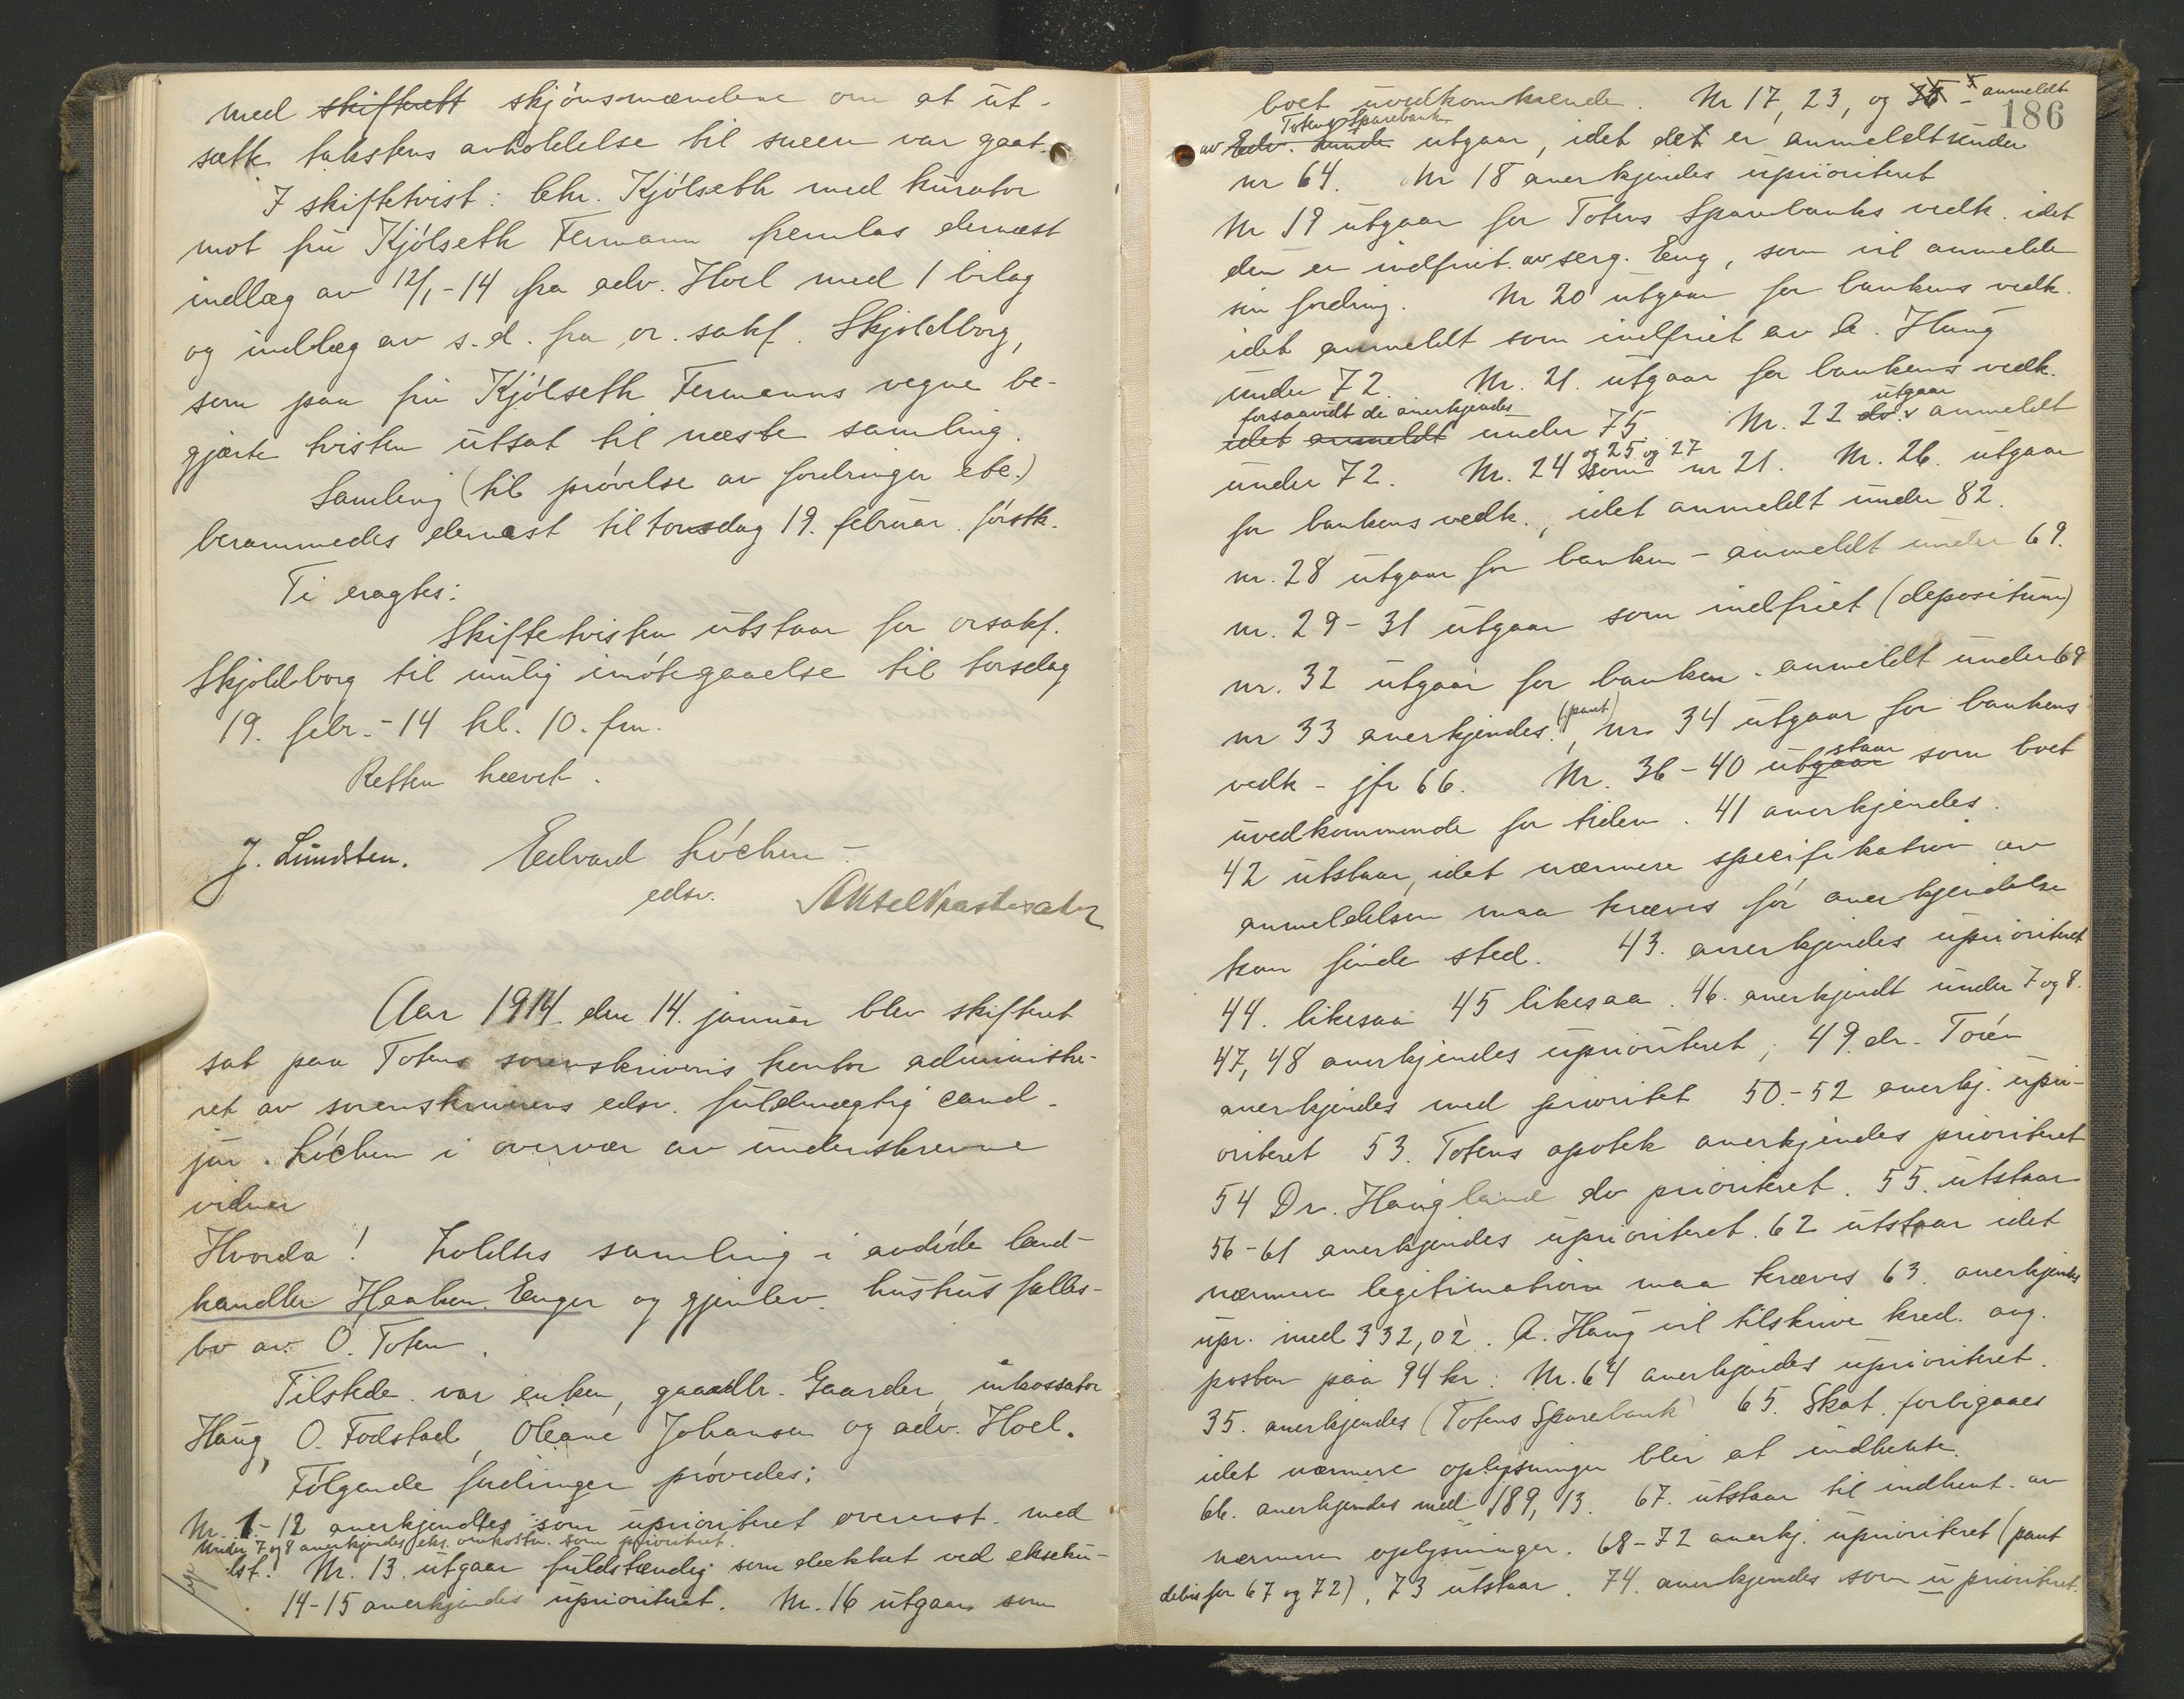 med skifteret skjönsmændene om at ut-
sætte takstens avholdelse til sneen var gaat.
I skiftetvist: Chr. Kjölseth med kurator
mot fru Kjölseth Fermann fremlas dernæst
indlæg av 12/1-14 fra adv. Hoel med 1 bilag
og indlæg av s.d. fra or. sakf. Skjoldborg,
som paa fru Kjölseth Fermanns vegne be-
gjærte tvisten utsat til næste samling.
Samling (til prövelse av fordringer etc.)
berammedes dernæst til torsdag 19. februar förstk.
Ti eragtes:
Skiftetvisten utstaar for orsakf.
Skjoldborg til mulig imötegaaelse til torsdag
19. febr.-14 kl. 10. fm.
Retten hævet.
J. Lundsten. Edvard Löchen -
edsv. Aksel
Aar 1914 den 14. januar blev skifteret
sat paa Totens sorenskriveris kontor administre-
ret av sorenskriverens edsv. fuldmægtig cand.
jur. Löchen i overvær av underskrevne
vidner
Hvorda! holdtes samling i avdöde land-
handler Haaken Enger og gjenlev. hustrus fælles-
bo av Ö. Toten.
Tilstede var enken, gaardbr. Gaarder, inkassator
Haug, O. Fodstad, Oleane Johansen og adv. Hoel.
Fölgende fordringer prövedes:
Nr. 1-12 anerkjendtes som uprioritert overenst. med
under 7 og 8 anerkjendes eks. omkostn. som prioritert.
lst. Nr. 13 utgaar fuldstændig som dækket ved ekseku-
14-15 anerkjendes uprioritert. Nr. 16 utgaar som
186
boet uvedkommende. Nr 17, 23, og 35 - anmeldt
Totens Sparebank
av Edv. utgaar, idet det er anmeldt under
nr 64. Nr 18 anerkjendes uprioritert
Nr 19 utgaar for Totens Sparebanks vedk. idet
den er indfriet av serg. Eng, som vil anmelde
sin fordring. Nr 20 utgaar for bankens vedk.
idet anmeldt som indfriet av A. Haug
under 72. Nr. 21. utgaar for bankens vedk.
forsaavidt de anerkjendes utgaar
idet anmeldt under 75 Nr. 22 do. anmeldt
og 25 og 27
under 72. Nr. 24 som nr 21. Nr. 26. utgaar
for bankens vedk., idet anmeldt under 82.
nr. 28 utgaar for banken - anmeldt under 69.
nr. 29-31 utgaar som indfriet (depositum)
nr. 32 utgaar for banken - anmeldt under 69
nr 33 anerkjendes (pant), nr 34 utgaar for bankens
staar
vedk - jfr 66. Nr. 36-40 utgaar som boet
uvedkommende for tiden. 41 anerkjendes.
42 utstaar, idet nærmere specifikation av
anmeldelsen maa kræves för anerkjendelse
kan finde sted. 43. anerkjendes uprioritert
44. likesaa 45 likesaa. 46. anerkjendt under 7 og 8.
47, 48 anerkjendes uprioritert; 49. dr. Torén
anerkjendes med prioritet 50.-52 anerkj. upri-
oritert 53. Totens apotek anerkjendes prioritert
54 Dr. Haugland do prioritert. 55. utstaar
56-61 anerkjendes uprioritert. 62 utstaar idet
nærmere legitimation maa kræves 63. anerkjendes
upr. med 332,02. A. Haug vil tilskrive kred. ang.
posten paa 94 kr. Nr. 64 anerkjendes uprioritert.
35. anerkjendes (Totens Sparebank) 65. Skat. forbigaaes
idet nærmere oplysninger blir at indhente.
66. anerkjendes med 189,13. 67. utstaar til indhent. av
nærmere oplysninger. 68-72 anerkj. uprioritert (pant
debis for 67 og 72), 73 utstaar. 74. anerkjendes som uprioritert.